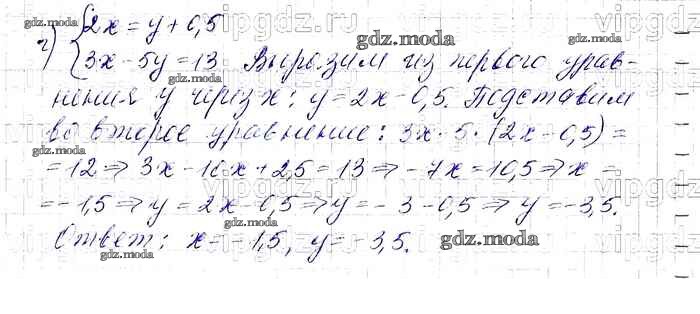 г) { 2x = y + 0,5
3x - 5y = 13 Выразим из первого урав-
нения y через x: y = 2x - 0,5. Подставим
во второе уравнение: 3x - 5 · (2x - 0,5) =
= 12 ⇒ 3x - 10x + 2,5 = 13 ⇒ -7x = 10,5 ⇒ x =
= -1,5 ⇒ y = 2x - 0,5 ⇒ y = - 3 - 0,5 ⇒ y = -3,5.
Ответ: x = -1,5, y = -3,5.
gdz.moda
gdz.moda
gdz.moda
gdz.moda
gdz.moda
gdz.moda
gdz.moda
gdz.moda
vipgdz.ru
vipgdz.ru
vipgdz.ru